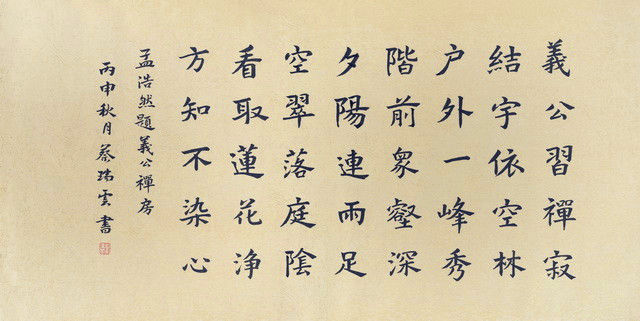 義公習禪寂
結宇依空林
户外一峰秀
階前衆壑深
夕陽連雨足
空翠落庭陰
看取蓮花浄
方知不染心
孟浩然題義公禪房
丙申秋月蔡瑞雲書